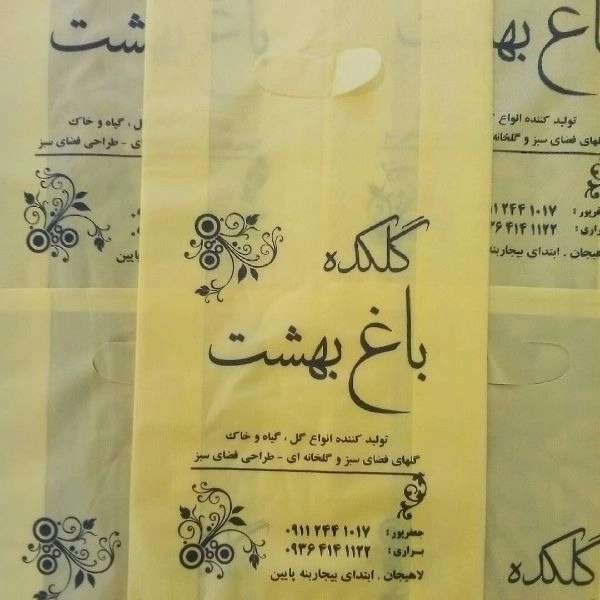 باغ بهشت
گل ، گیاه و خاک
ای - طراحی فضای سبز
پایین
باغ بهـ
تولید کننده انواع
گلهای فضای سبز و گلخانه
جعفرپور : ۰۹۱۱ ۲۴۴ ۱۰۱۷
براری : ۰۹۳۶ ۴۱۴ ۱۱۲۲
لاهیجان . ابتدای بیجاربنه
گلکده
باغ بهشت
تولید کننده انواع گل ، گیاه و خاک
گلهای فضای سبز و گلخانه ای - طراحی فضای سبز
جعفرپور : ۰۹۱۱ ۲۴۴ ۱۰۱۷
براری : ۰۹۳۶ ۴۱۴ ۱۱۲۲
لاهیجان . ابتدای بیجاربنه پایین
گلکده